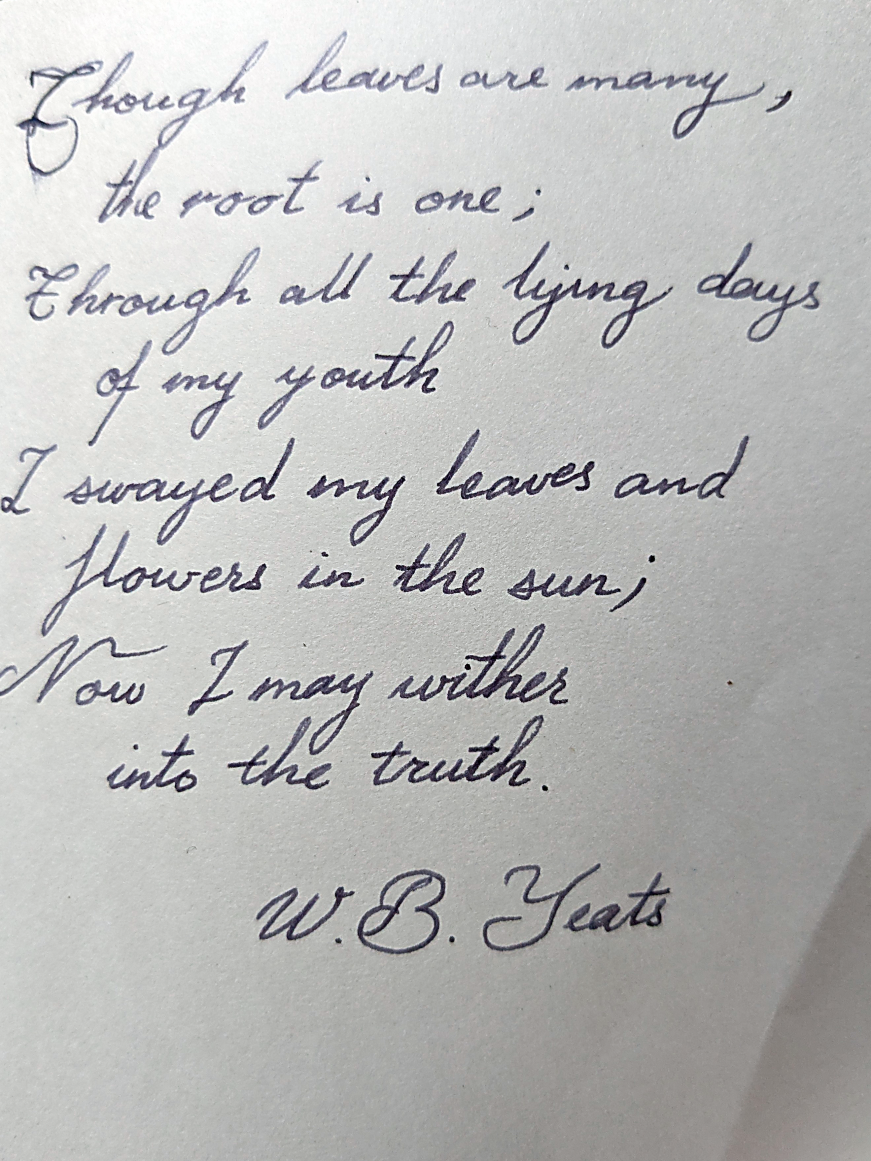 Though leaves are many,
the root is one;
Through all the lying days
of my youth
I swayed my leaves and
flowers in the sun;
Now I may wither
into the truth.
W. B. Yeats